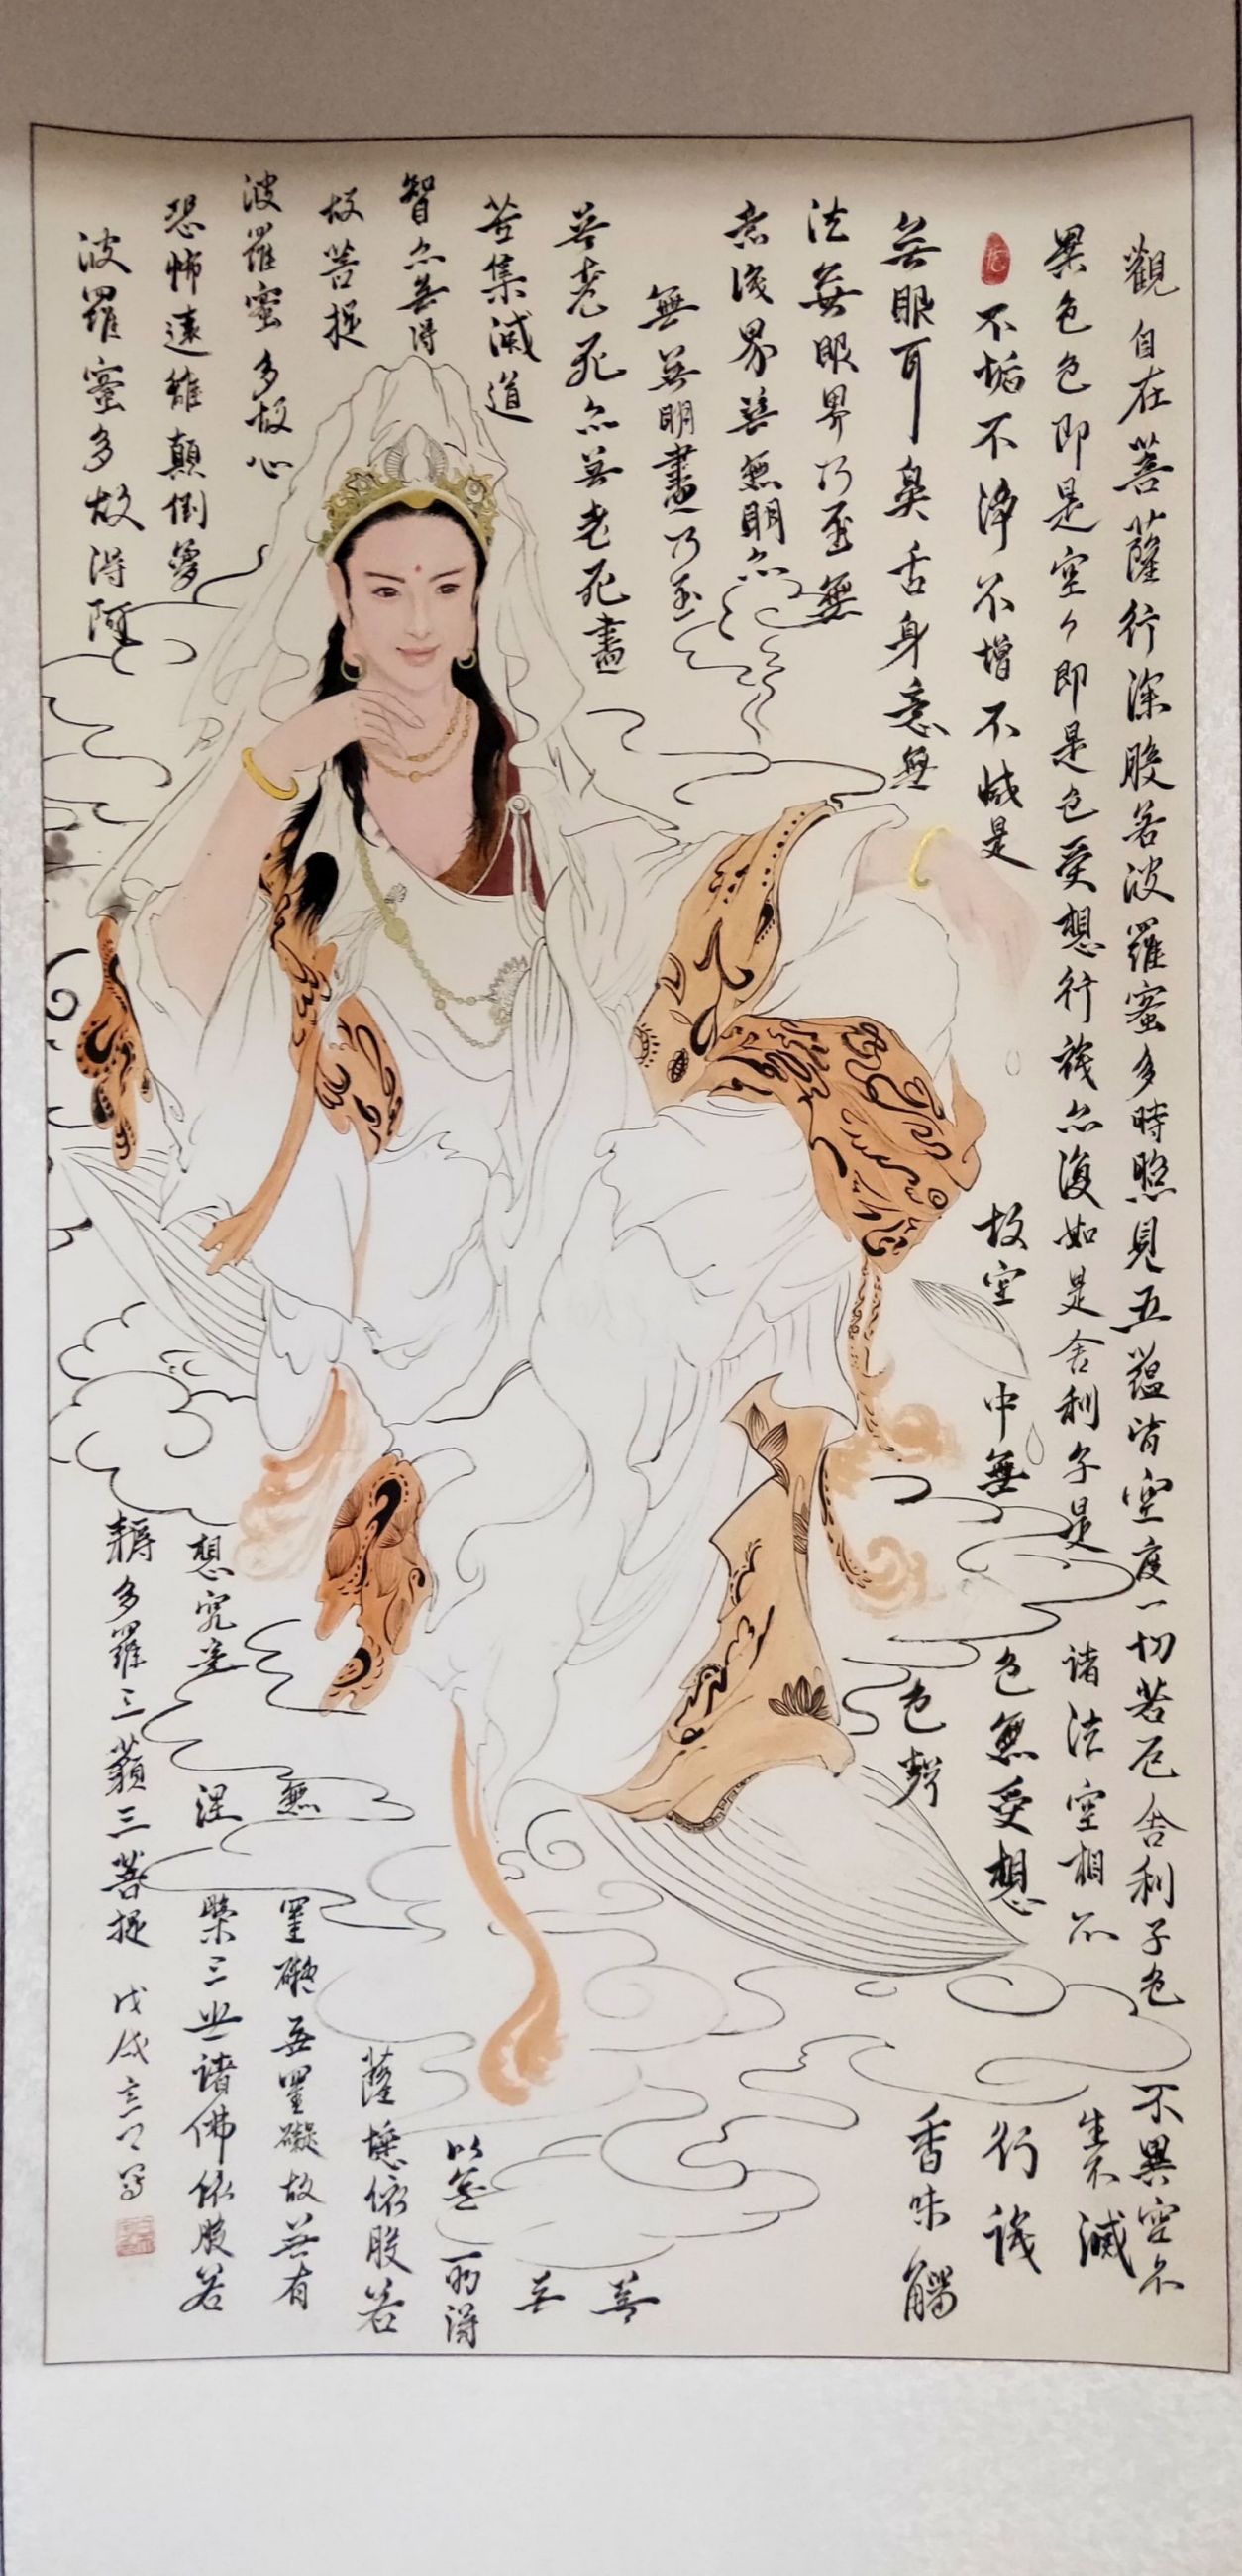 觀自在菩薩行深般若波羅蜜多時照見五蘊皆空度一切苦厄舍利子色不異空不
異色色即是空々即是色受想行識亦復如是舍利子是諸法空相不生不滅
不垢不淨不增不減是故空中無色無受想行識
無眼耳鼻舌身意無色聲香味觸
法無眼界乃至無
意識界無無明亦
無無明盡乃至
無老死亦無老死盡無
苦集滅道無
智亦無得以無所得
故菩提薩埵依般若
波羅蜜多故心無罣礙無罣礙故無有
恐怖遠離顛倒夢想究竟涅槃三世諸佛依般若
波羅蜜多故得阿耨多羅三藐三菩提 戊戌 寫